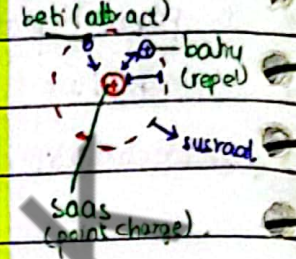 beti (attract)
bahu
(repel)
susraal
saas
(point charge)